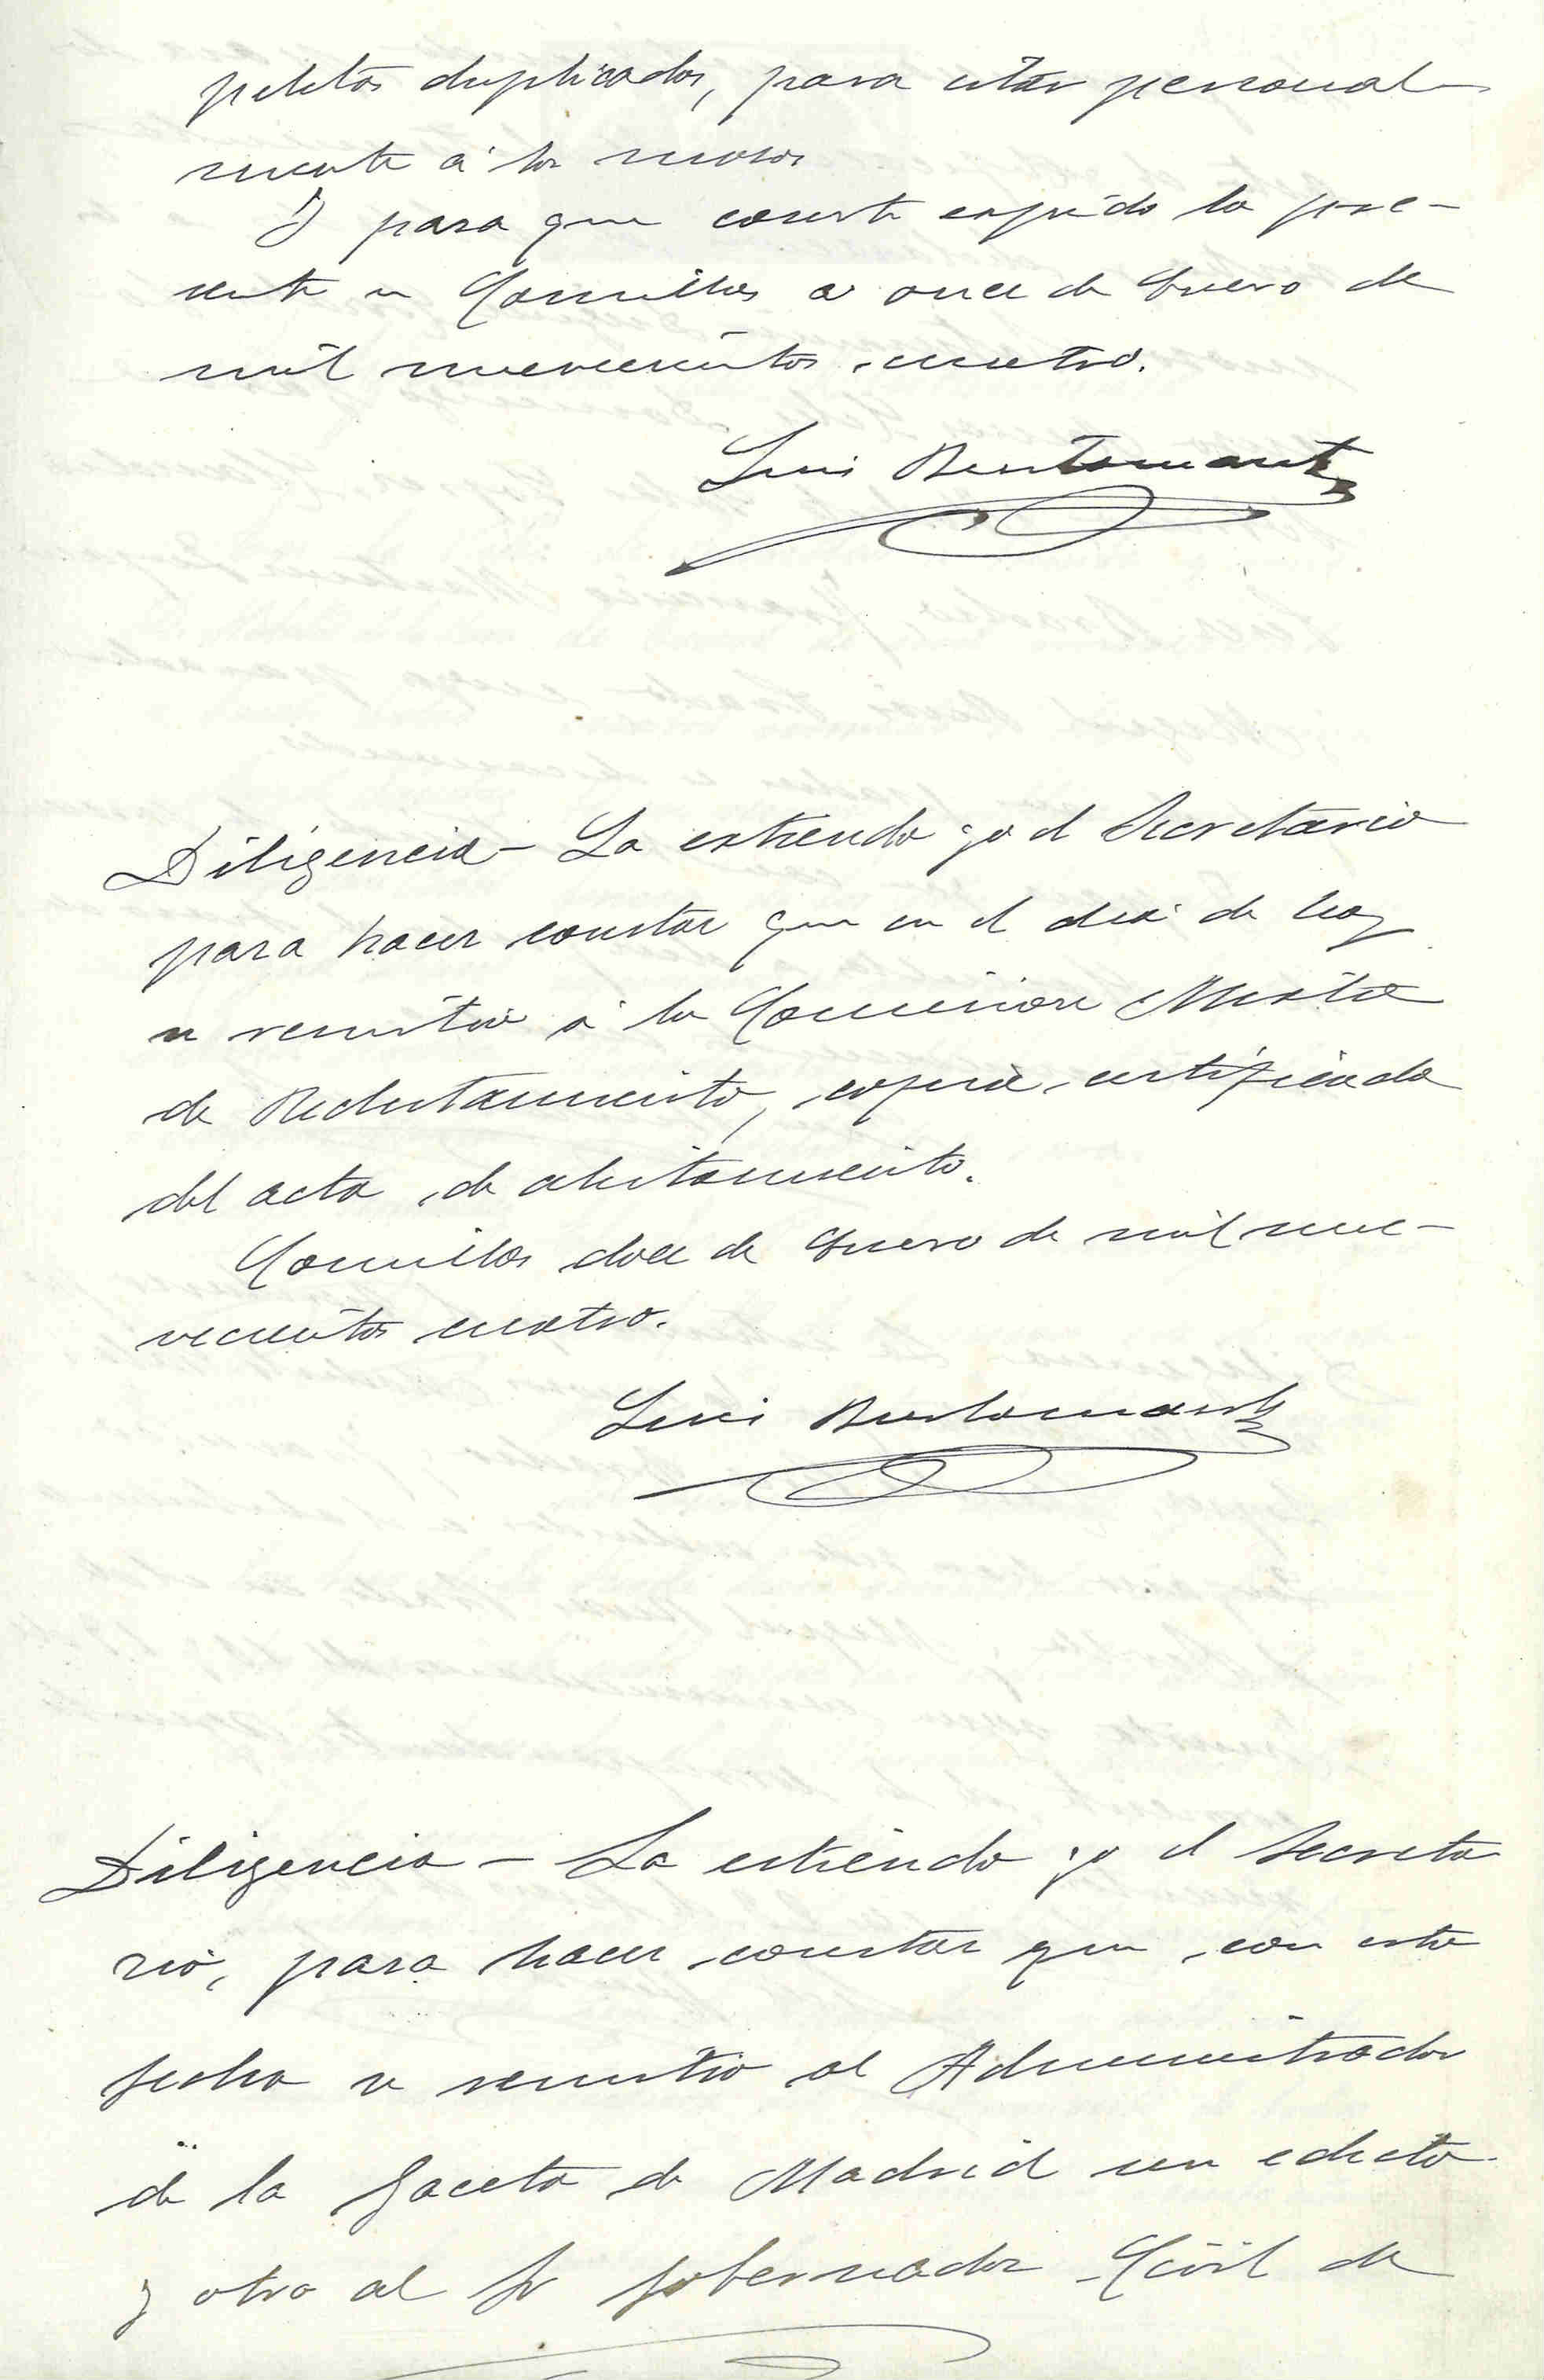 peletas duplicadas, para citar personal-
mente á los mozos
Y para que conste expido la pre-
sente en Comillas a once de Enero de
mil novecientos cuatro.
Luis
Diligencia - La estiendo yo el Secretario
para hacer constar que en el dia de hoy
se remitio á la Comision Mixta
de Reclutamiento, copia certificada
del acta de alistamiento.
Comillas doce de Enero de mil nue-
vecientos cuatro.
Luis
Diligencia - La estiendo yo el Secreta
rio, para hacer constar que con esta
fecha se remitio al Administrador
de la Gaceta de Madrid un edicto
y otro al Sr Gobernador Civil de